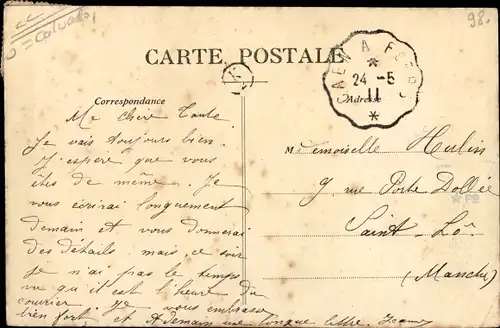 = Calvados
98.
CARTE POSTALE
CAEN A
24 -5
11
Correspondance
Adresse
Ma chère Tante
Je vais toujours bien.
J'espère que vous
êtes de même. Je
vous écrirai longuement
demain et vous donnerai
des détails mais ce soir
je n'ai pas le temps
vu qu'il est l'heure du
courier je vous embrasse
bien fort et à demain une longue lettre.
Mademoiselle Hulin
9, rue Porte Dollée
Saint-Lô
(Manche)